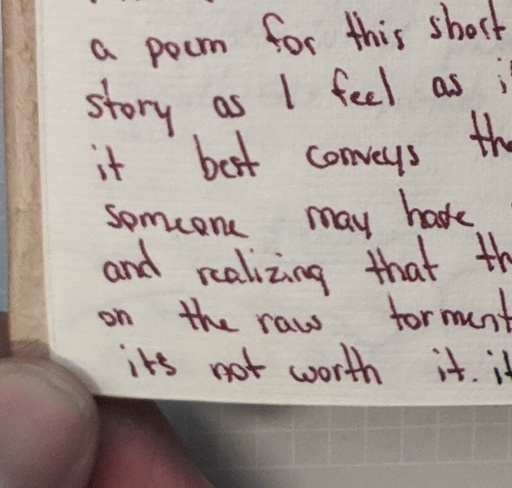 a poem for this short
story as I feel as
it best conveys
someone may have
and realizing that
on the raw torment
it's not worth it.